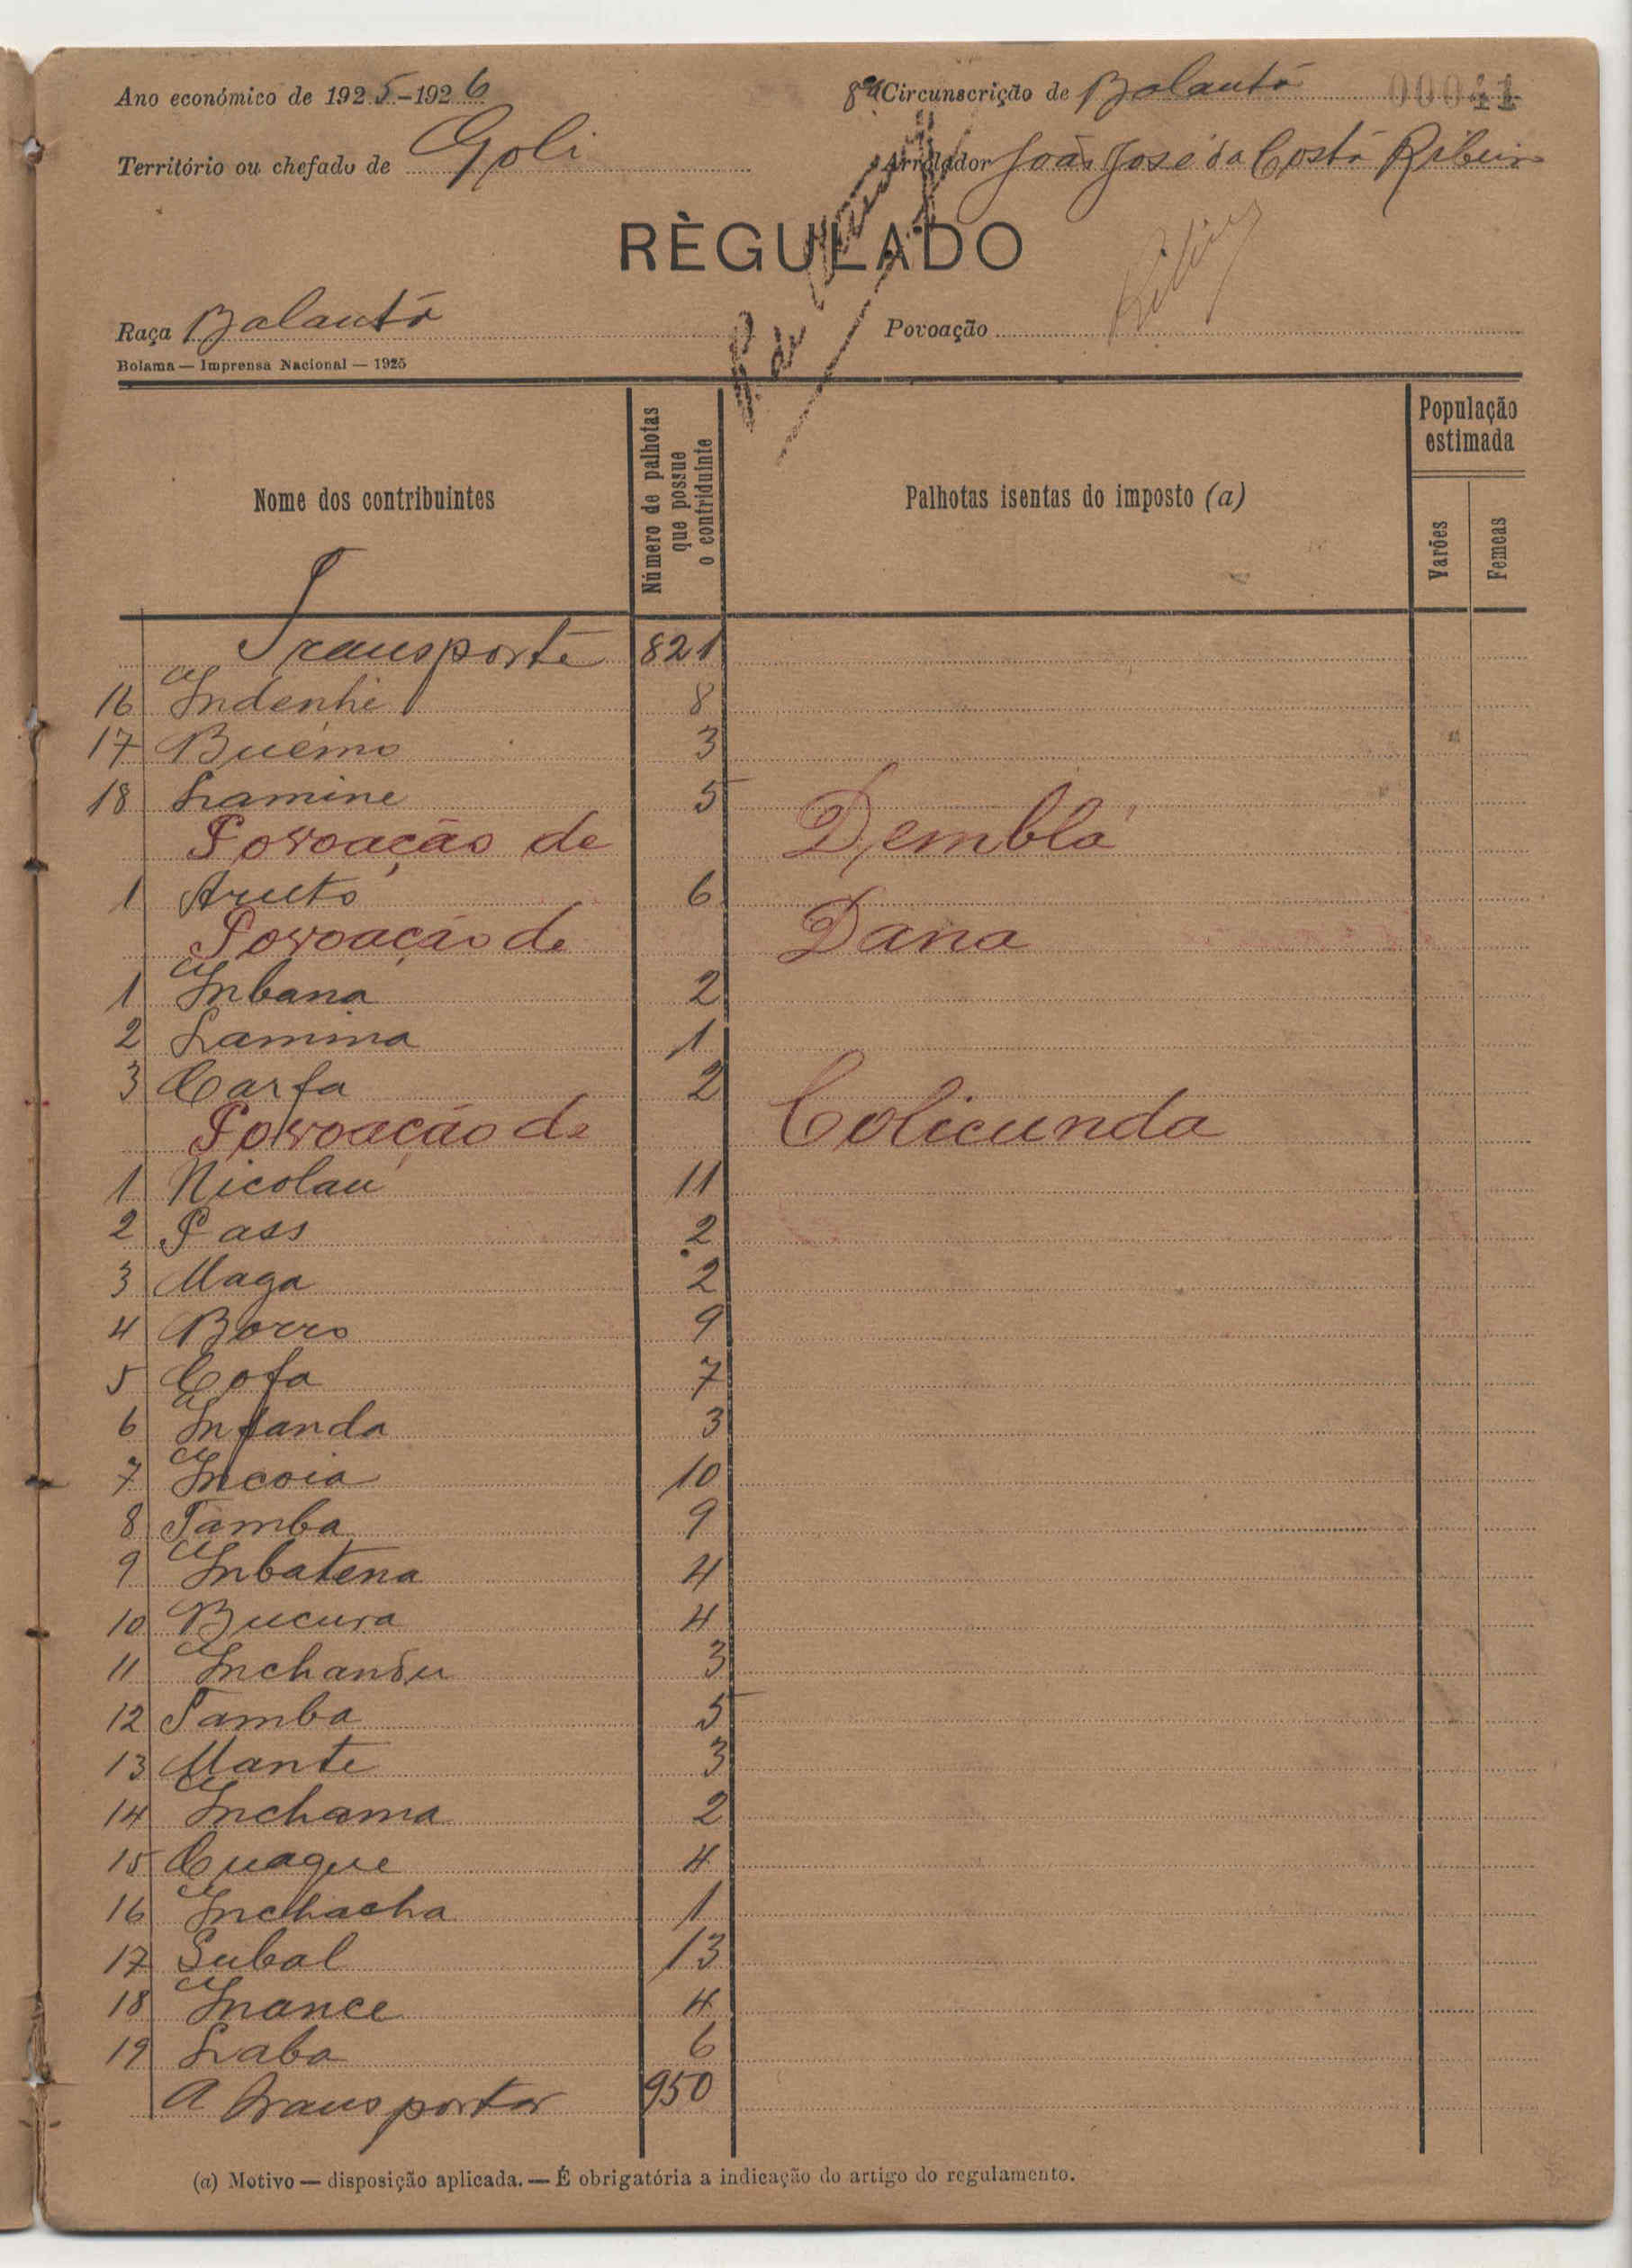 Ano económico de 1925-1926
8ª Circunscrição de Balanta 00041
Território ou chefado de Goli
Arrolador João José da Costa Ribeiro
RÈGULADO
Raça Balanta
Povoação
Bolama — Imprensa Nacional — 1925
Nome dos contribuintes
Número de palhotas que possue o contriduinte
Palhotas isentas do imposto (a)
População estimada
Varões
Femeas
Transporte 821
16 Indenhi 8
17 Buémo 3
18 Lamine 5
Povoação de Demblá
1 Aruto 6
Povoação de Dana
1 Inbana 2
2 Lamina 1
3 Carfa 2
Povoação de Colicunda
1 Nicolau 11
2 Pass 2
3 Maga 2
4 Borro 9
5 Cofa 7
6 Infanda 3
7 Incoia 10
8 Tamba 9
9 Inbatena 4
10 Bucura 4
11 Inchandu 3
12 Tamba 5
13 Mante 3
14 Inchama 2
15 Cuaque 4
16 Inchacha 1
17 Subal 13
18 Inance 4
19 Laba 6
A transportar 950
(a) Motivo — disposição aplicada. — É obrigatória a indicação do artigo do regulamento.